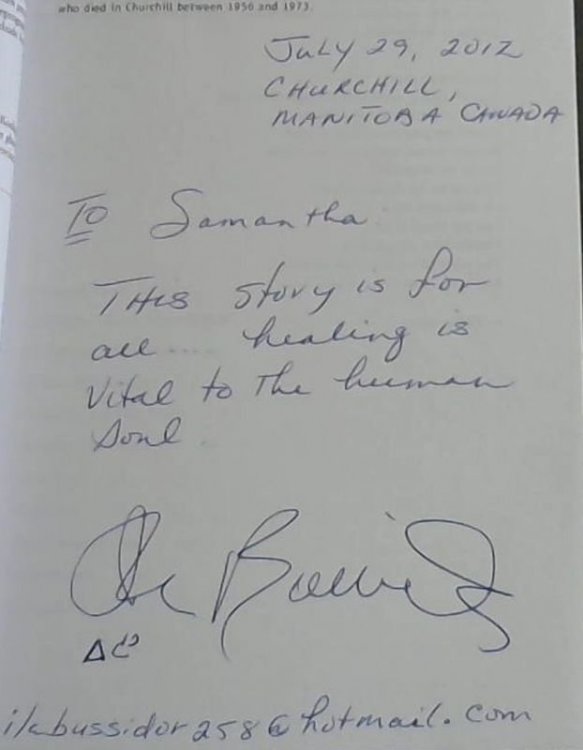 who died in Churchill between 1956 and 1973.
JULY 29, 2012
CHURCHILL,
MANITOBA CANADA
TO Samantha
THIS story is for
all .... healing is
vital to the human
soul.
ilabussidor258@hotmail.com